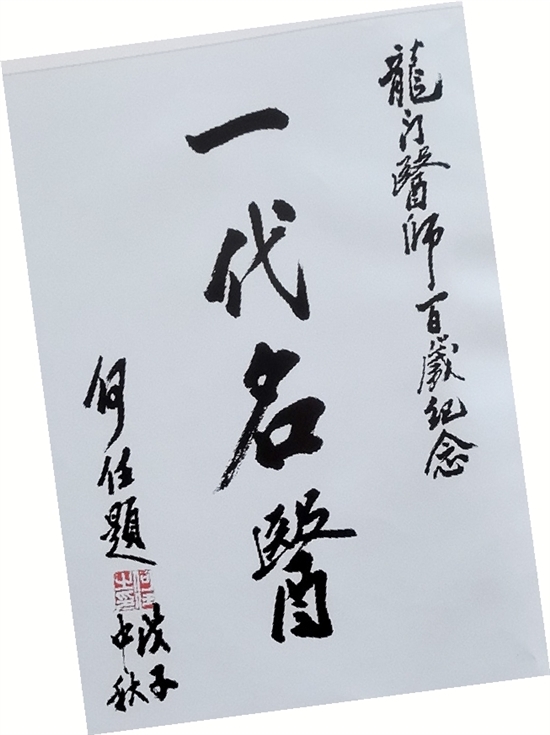 龍门醫師百歲紀念
一代名醫
何任題
何任之印
戊子
中秋